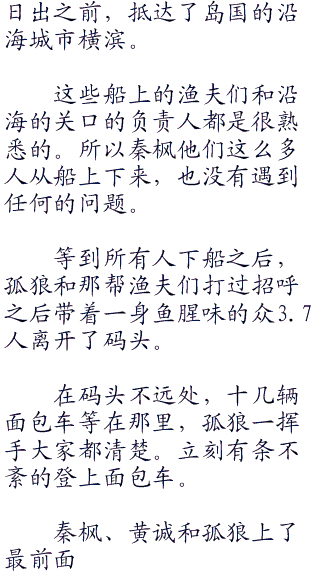 日出之前，抵达了岛国的沿
海城市横滨。
这些船上的渔夫们和沿
海的关口的负责人都是很熟
悉的。所以秦枫他们这么多
人从船上下来，也没有遇到
任何的问题。
等到所有人下船之后，
孤狼和那帮渔夫们打过招呼
之后带着一身鱼腥味的众3.7
人离开了码头。
在码头不远处，十几辆
面包车等在那里，孤狼一挥
手大家都清楚。立刻有条不
紊的登上面包车。
秦枫、黄诚和孤狼上了
最前面